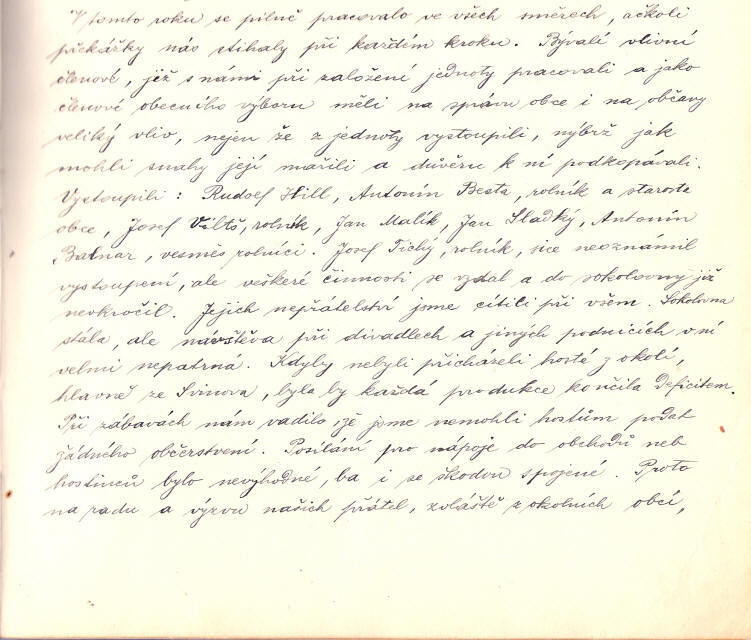 V tomto roku se pilně pracovalo ve všech směrech, ačkoli
překážky nás stihaly při každém kroku. Bývalí vlivní
členové, již s námi při založení jednoty pracovali a jako
členové obecního výboru měli na správu obce i na občany
veliký vliv, nejen že z jednoty vystoupili, nýbrž jak
mohli snahy její mařili a důvěru k ní podkopávali.
Vystoupili : Rudolf Hill, Antonín Besta, rolník a starosta
obce, Josef rolník, Jan Malík, Jan Sladký, Antonín
vesměs rolníci. Josef Tichý, rolník, sice neoznámil
vystoupení, ale veškeré činnosti se vzdal a do sokolovny již
nevkročil. Jejich nepřátelství jsme cítili při všem. Sokolovna
stála, ale návštěva při divadlech a jiných podnicích v ní
velmi nepatrná. Kdyby nebyli přicházeli hosté z okolí,
hlavně ze Svinova, byla by každá produkce končila deficitem.
Při zábavách nám vadilo, že jsme nemohli hostům podat
žádného občerstvení. Posílání pro nápoje do obchodů neb
hostinců bylo nevýhodné, ba i se škodou spojené. Proto
na radu a výzvu našich přátel, zvláště z okolních obcí,